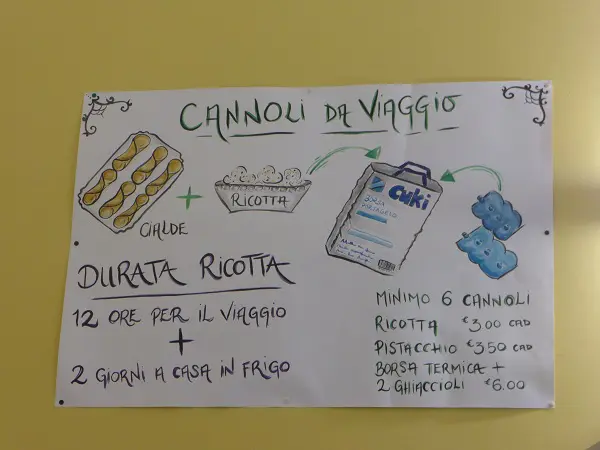 CANNOLI DA VIAGGIO
CIALDE
+
RICOTTA
cuki
BORSA
DURATA RICOTTA
12 ORE PER IL VIAGGIO
+
2 GIORNI A CASA IN FRIGO
MINIMO 6 CANNOLI
RICOTTA €3.00 CAD
PISTACCHIO €3.50 CAD
BORSA TERMICA +
2 GHIACCIOLI €6.00